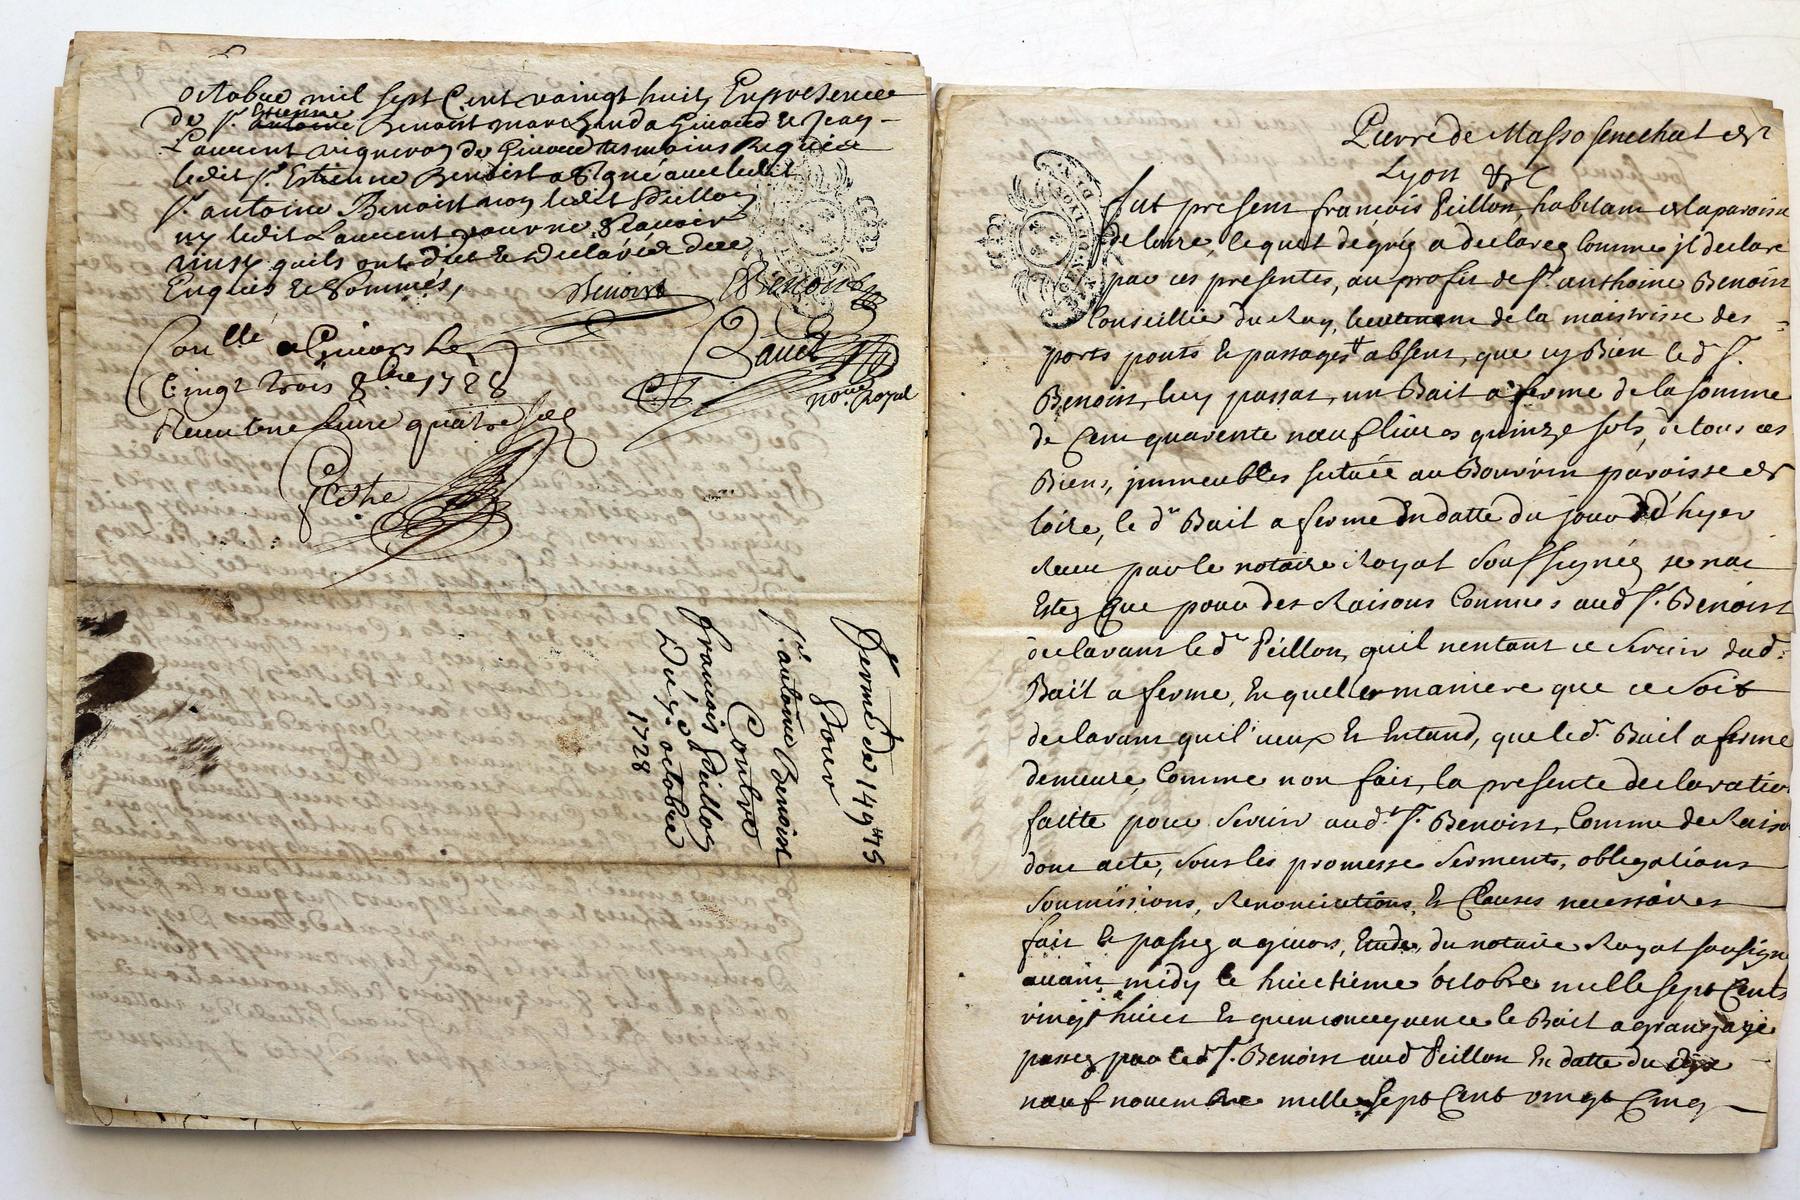 octobre mil sept Cent vaingt huit, En presence
de Sr. Estienne Benoist marchand a Givord & Jean
Laurent vigneron de Givord tesmoins Requis
ledit Sr. Estienne Benoist a signé avec ledit
Sr. antoine Benoist non ledit Peillon
ny ledit Laurent pour ne sçavoir
ainsy quils ont dict & declaré de ce
Enquis & sommés,
Benoist Benoist
Conllé a Givors Le
Vingt trois 8bre 1728
Recu une livre quatre sols
nore. Royal
Ferme de 149tt 15
Pour
Sr. antoine Benoist
Contre
francois Peillon
Du 7e octobre
1728
Pierre de Masso senechal de
Lyon &c
fut present francois Peillon, habitant de la paroisse
de loire, lequel de gré a declareé Comme jl declare
par ces presentes, au profit de Sr. anthoine Benoist
Conseillié du Roy, lieutenant de la maistrisse des
ports ponts & passages absent, que cy Bien le dt Sr.
Benoist, luy passat, un Bail a ferme de la somme
de Cent quarente nœuf livres quinze sols, de tous ces
Biens, jmmeubles situéé au Bourvin paroisse de
loire, le dt Bail a ferme En datte du jour d'hyer
Receu par le notaire Royal Soussignéz se n'ai
Estez Que pour des Raisons Connues aud Sr. Benoist
declarant le dt Peillon, quil nentant ce servir dud.
Bail a ferme, En quelle maniere que ce soit
declarant quil veux & Entand, que le dt. Bail a ferme
demeure, Comme non fait, la presente declaration
faitte pour servir aud. Sr. Benoist, Comme de Raison
dont acte, sous les promesse serments, obligations
soumissions, Renonciations, & Clauses necessaires
fait & passez a givors, Etude, du notaire Royal sousigné
avant midy le huictieme octobre mille sept Cents
vingt huict & quen consequence le Bail a grangeage
passez par le dt Sr. Benoist aud Peillon En datte du dix
nœuf novembre mille sept Cent vingt Cinq